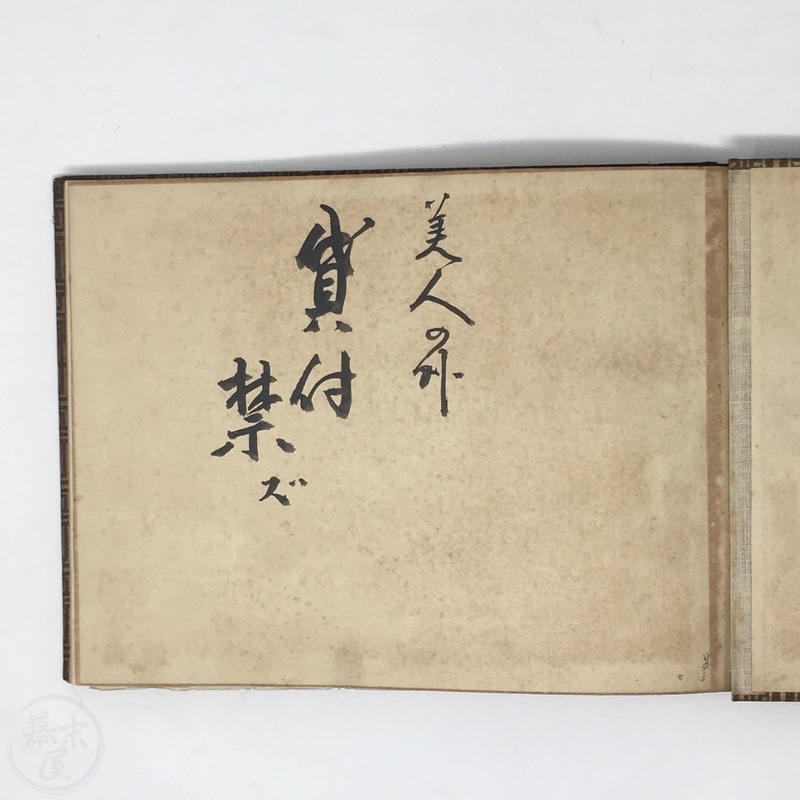 美人の外
貸付
禁ズ
幕末屋